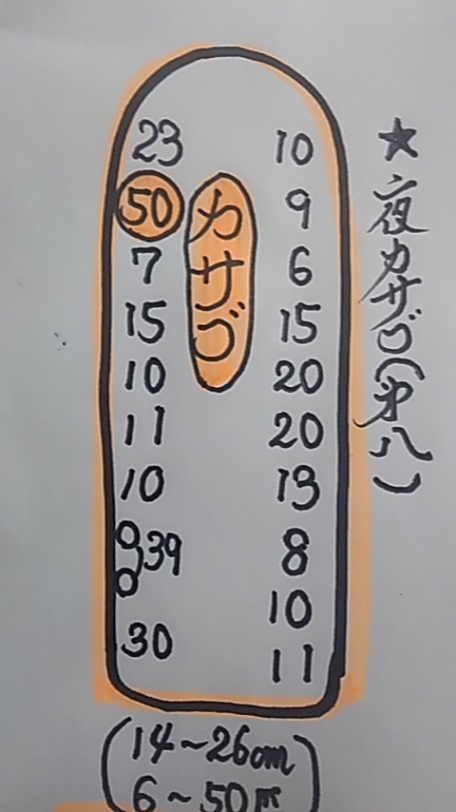 ★夜カサゴ(才八)
カサゴ
23 10
50 9
7 6
15 15
10 20
11 20
10 13
39 8
10
30
11
(14~26cm
6~50m)